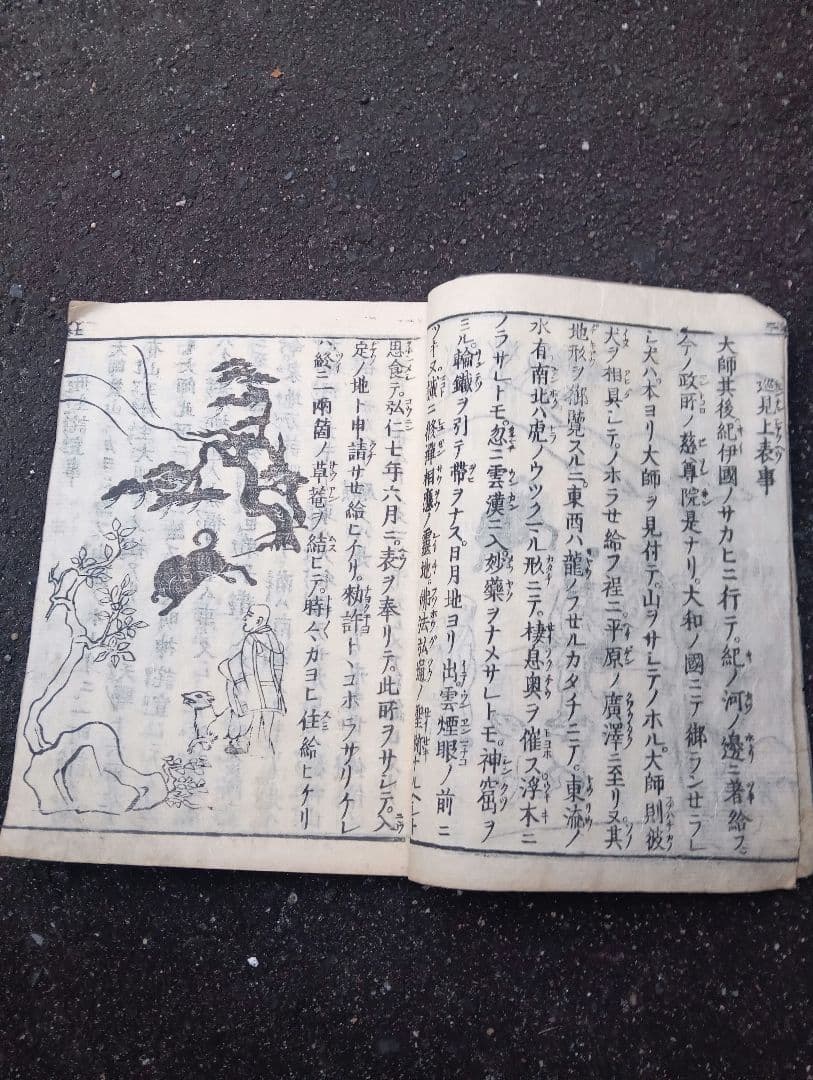 巡見上表事
大師其後紀伊國ノサカヒニ行テ。紀ノ河ノ邊ニ著給フ。
今ノ政所ノ慈尊院是ナリ。大和ノ國ニテ御ランセラレ
シ犬ハ。本ヨリ大師ヲ見付テ。山ヲサシテノホル。大師則彼
犬ヲ相具シテ。ノホラせ給フ程ニ。平原ノ廣澤ニ至リヌ其
地形ヲ御覽スルニ。東西ハ龍ノフせルカタチニテ。東流ノ
水有南北ハ虎ノウツクマル形ニテ。棲息奥ヲ催ス浮木ニ
ノラサレトモ。忽ニ雲漢ニ入妙藥ヲナメサレトモ。神窟ヲ
ミル。輪鐵ヲ引テ帶ヲナス。日月地ヨリ出。雲煙眼ノ前ニ
ツキヌ誠ニ修禪相應ノ靈地。佛法弘
思食テ。弘仁七年六月ニ。表ヲ奉リテ。此所ヲサシテ。入
定ノ地ト申請サせ給ヒケリ。勅許トヽコホラサリケレ
ハ。終ニ一兩箇ノ草菴ヲ結ヒテ。時々カヨヒ住給ヒケリ